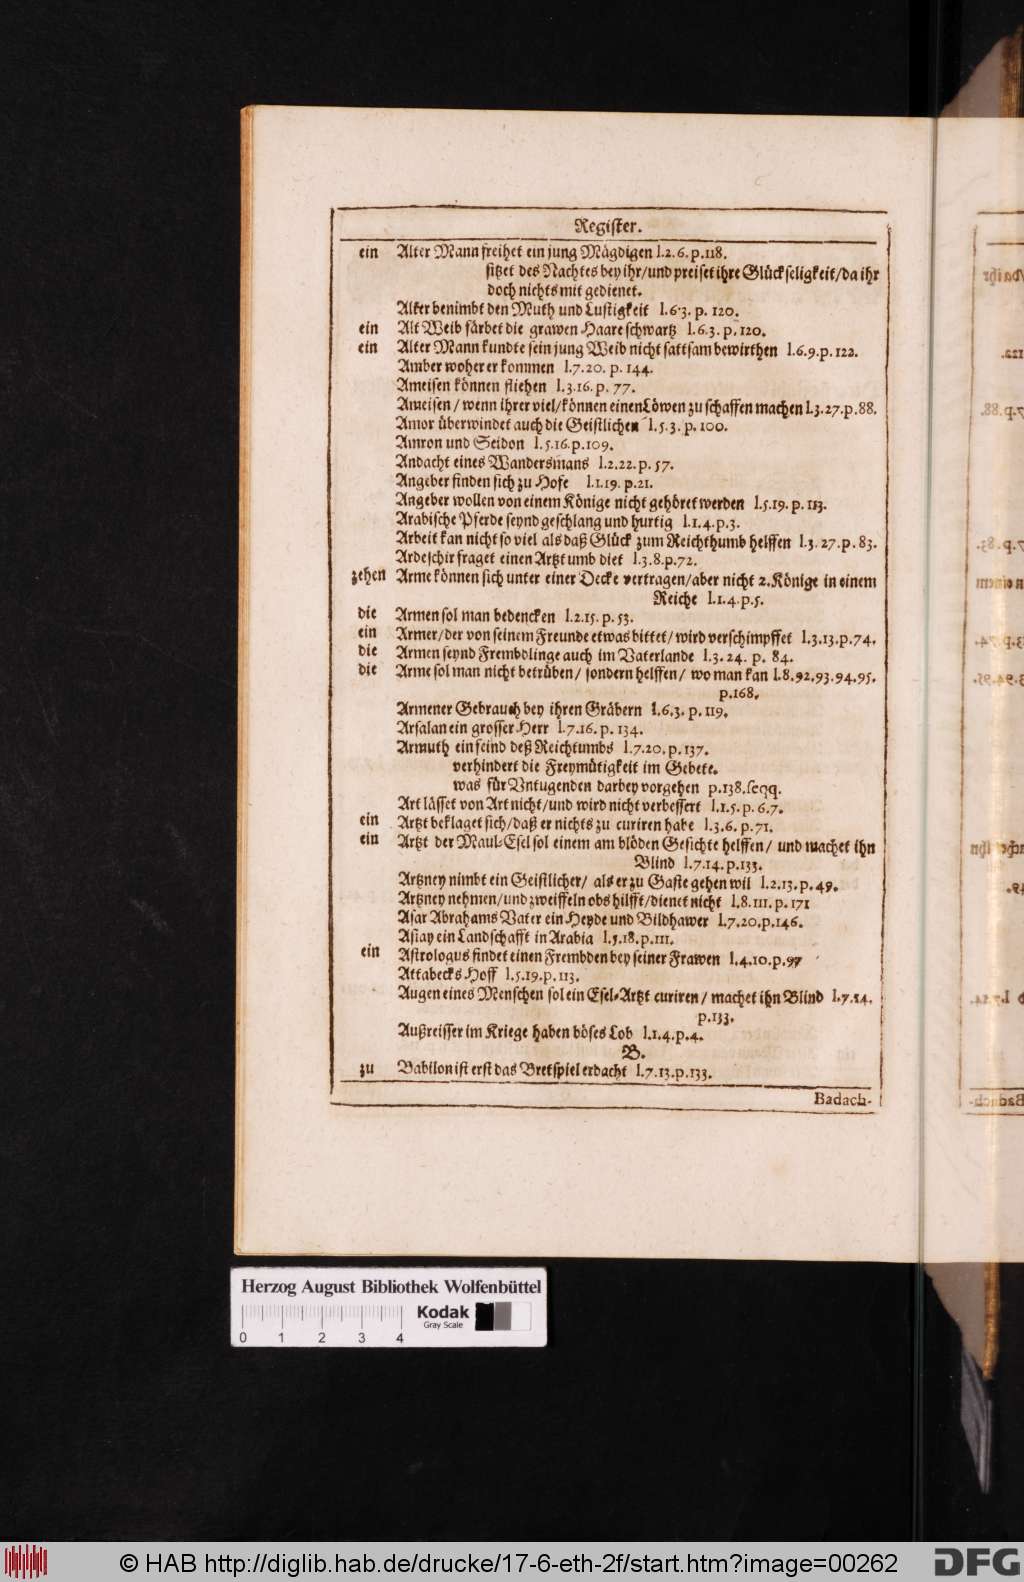 Register.
ein Alter Mann freihet ein jung Mägdigen l.2.6.p.118.
sitzet des Nachtes bey ihr/und preiset ihre Glückseligkeit/da ihr
doch nichts mit gedienet.
Alter benimbt den Muth und Lustigkeit l.6.3. p. 120.
ein Alt Weib färbet die grawen Haare schwartz l.6.3. p. 120.
ein Alter Mann kundte sein jung Weib nicht sattsam bewirthen l.6.9.p.122.
Amber woher er kommen l.7.20. p. 144.
Ameisen können fliehen l.3.16.p. 77.
Ameisen / wenn ihrer viel/können einen Löwen zu schaffen machen l.3.27.p.88.
Amor überwindet auch die Geistlichen l.5.3. p. 100.
Amron und Seidon l.5.16.p.109.
Andacht eines Wandersmans l.2.22. p. 57.
Angeber finden sich zu Hofe l.1.19. p.21.
Angeber wollen von einem Könige nicht gehöret werden l.5.19. p. 113.
Arabische Pferde seynd geschlang und hurtig l.1.4.p.3.
Arbeit kan nicht so viel als daß Glück zum Reichthumb helffen l.3.27.p.83.
Ardeschir fraget einen Artzt umb diet l.3.8.p.72.
zehen Arme können sich unter einer Decke vertragen/aber nicht 2. Könige in einem
Reiche l.1.4.p.5.
die Armen sol man bedencken l.2.15. p. 53.
ein Armer/der von seinem Freunde etwas bittet/ wird verschimpffet l.3.13.p.74.
die Armen seynd Frembdlinge auch im Vaterlande l.3.24. p. 84.
die Arme sol man nicht betrüben/ sondern helffen/ wo man kan l.8.92.93.94.95.
p.168.
Armener Gebrauch bey ihren Gräbern l.6.3. p. 119.
Arsalan ein grosser Herr l.7.16. p. 134.
Armuth ein feind deß Reichtumbs l.7.20. p. 137.
verhindert die Freymütigkeit im Gebete.
was für Untugenden darbey vorgehen p.138.seqq.
Art lässet von Art nicht/und wird nicht verbessert l.1.5. p. 6.7.
ein Artzt beklaget sich/daß er nichts zu curiren habe l.3.6. p.71.
ein Artzt der Maul-Esel sol einem am blöden Gesichte helffen/ und machet ihn
Blind l.7.14.p.133.
Artzney nimbt ein Geistlicher/ als er zu Gaste gehen wil l.2.13. p. 49.
Artzney nehmen/und zweiffeln obs hilfft/dienet nicht l.8.111. p. 171
Asar Abrahams Vater ein Heyde und Bildhawer l.7.20.p.146.
Asiay ein Landschafft in Arabia l.5.18. p.111.
ein Astrologus findet einen Frembden bey seiner Frawen l.4.10.p.97
Attabecks Hoff l.5.19.p.113.
Augen eines Menschen sol ein Esel-Artzt curiren/ machet ihn Blind l.7.14.
p.133.
Außreisser im Kriege haben böses Lob l.1.4.p.4.
B.
zu Babilon ist erst das Bretspiel erdacht l.7.13.p.133.
Badach-
Herzog August Bibliothek Wolfenbüttel
0 1 2 3 4
Kodak
Gray Scale
© HAB http://diglib.hab.de/drucke/17-6-eth-2f/start.htm?image=00262
DFG